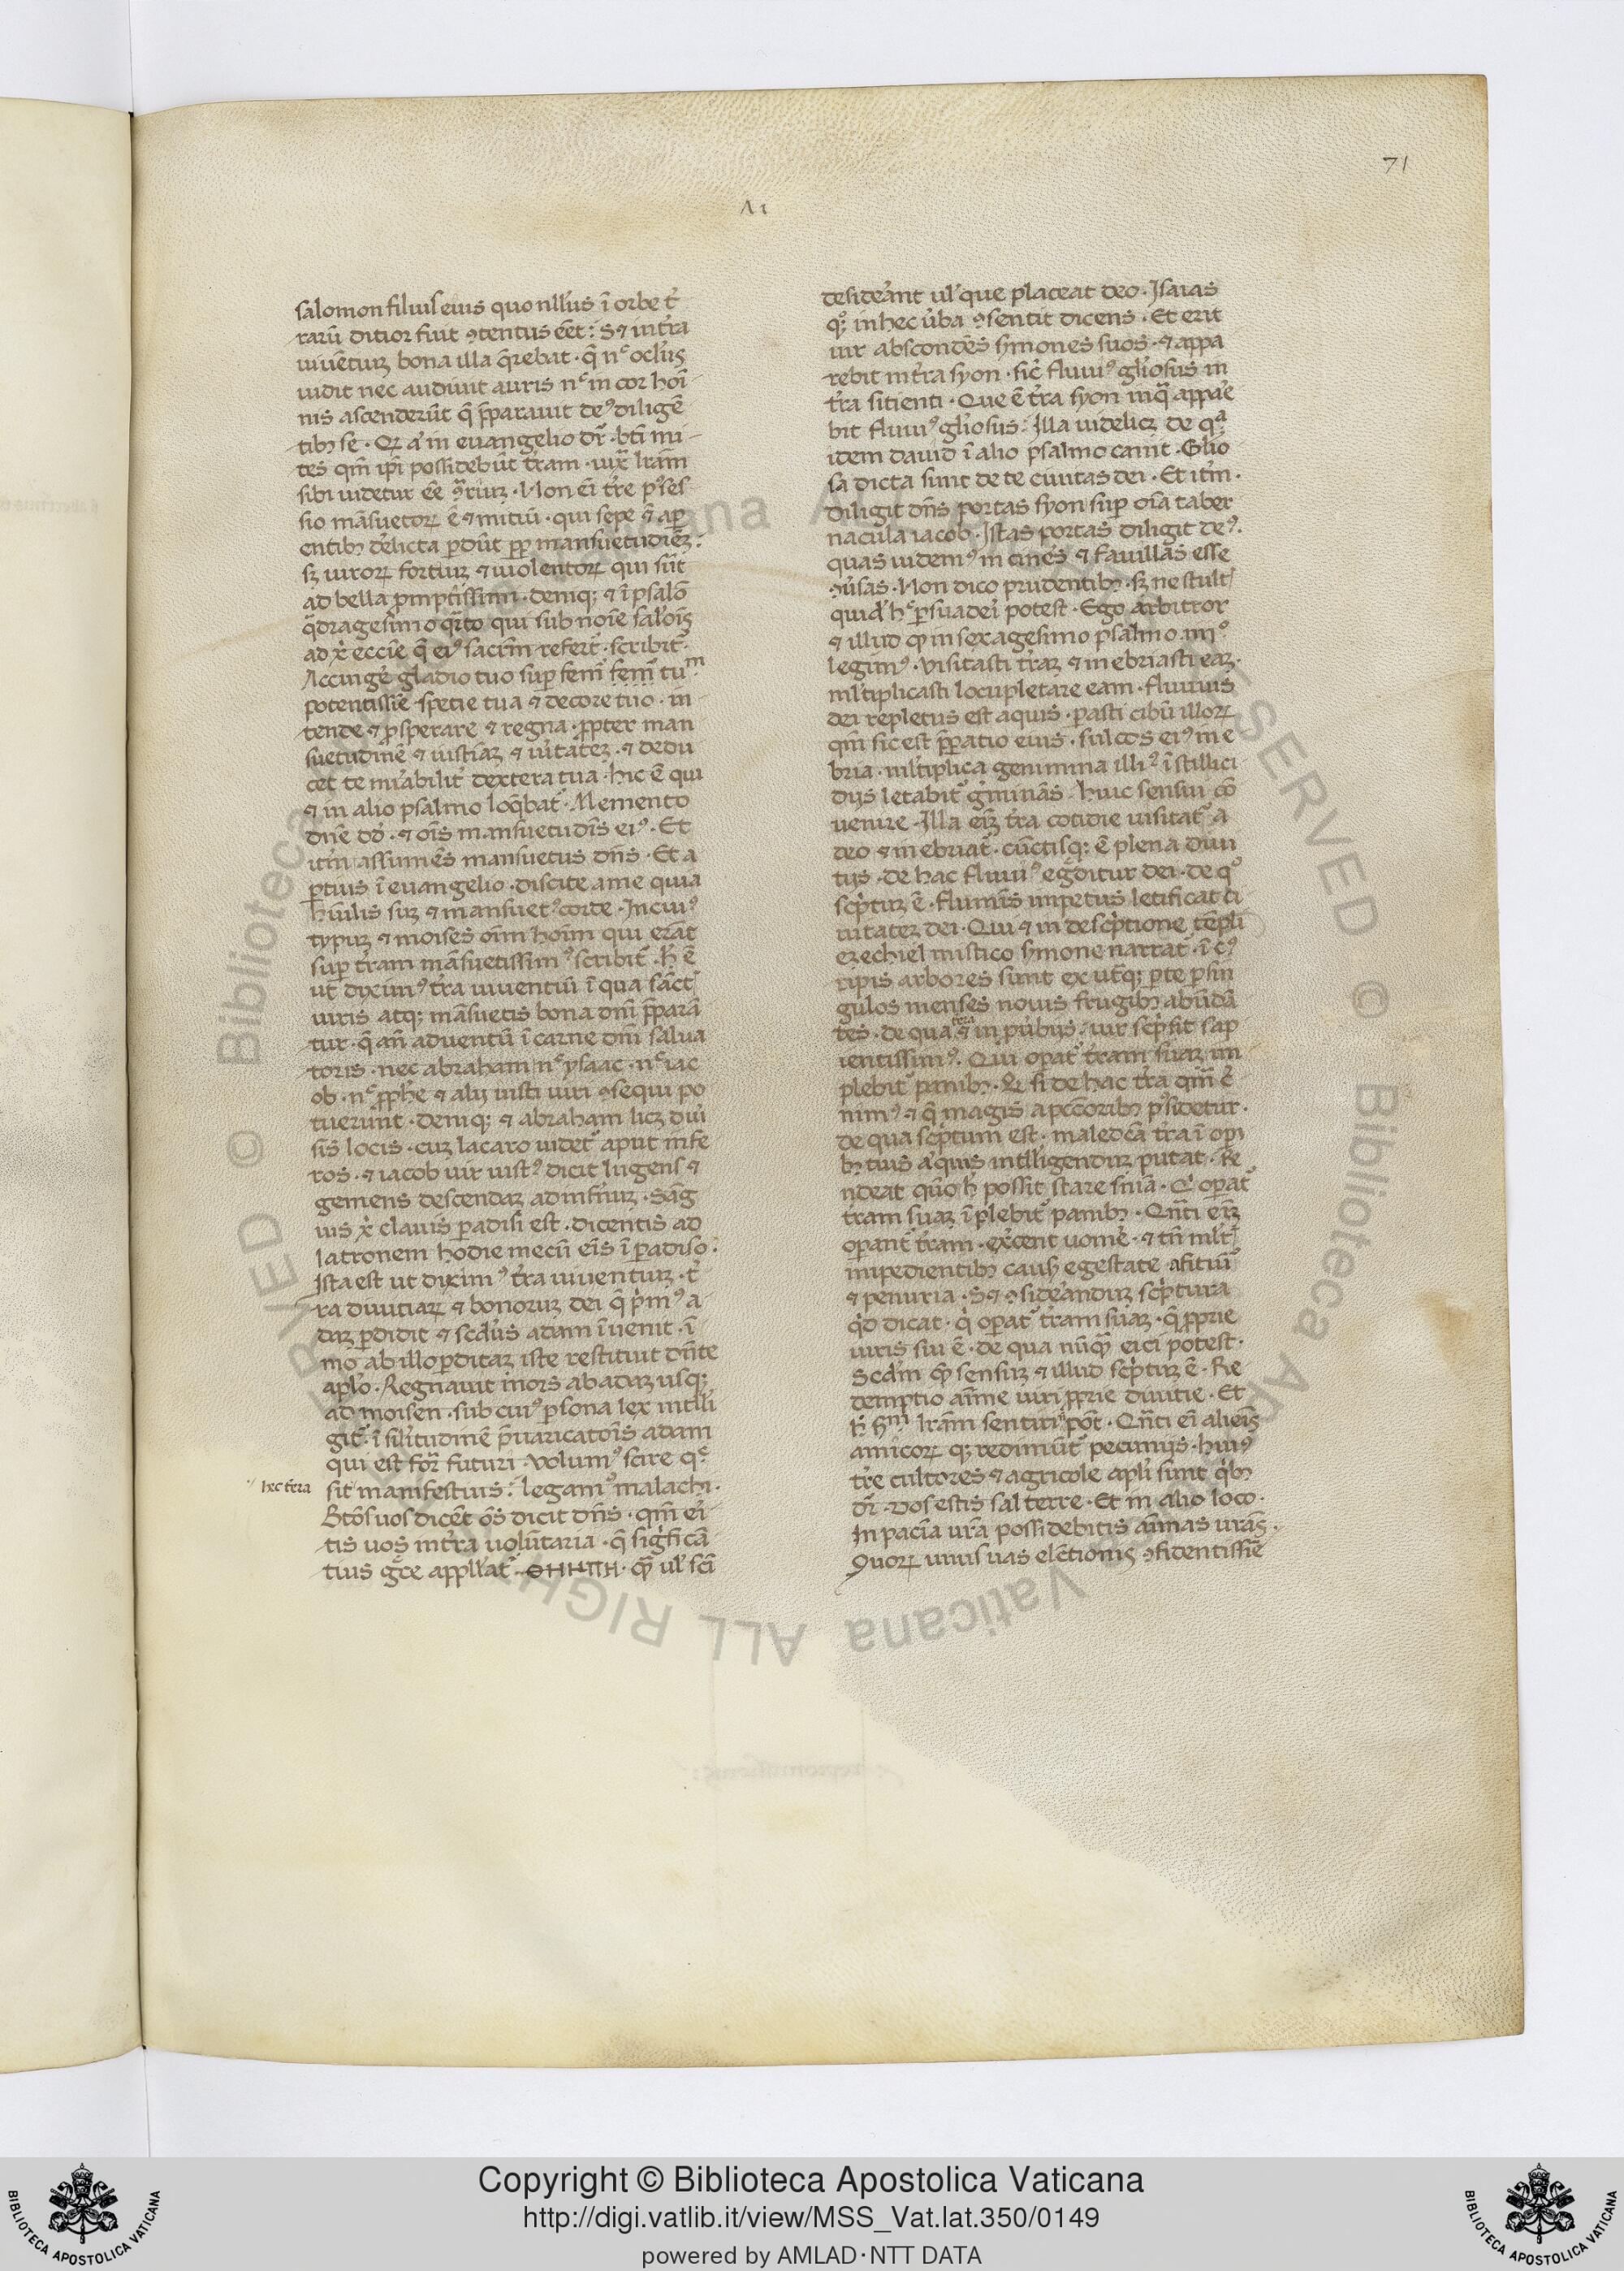 71
VI
salomon filius eius quo nllus ī orbe t̄
rarū ditior fuit ꝯtentus eēt: Sꝫ in t̄ra
uiuētiuꝫ bona illa q̄rebat · q̄ nᶜ oclus
uidit nec audiuit auris nᶜ in cor hoī
nis ascenderūt q̄ p̄parauit deꝰ diligē
tibꝫ se · in euangelio dr̄ · bt̄i mi
tes qm̄ ip̄i possidebūt t̄ram · lrām
sibi uidetur eē ꝯriuꝫ · Non eī t̄re pꝰses
sio māsuetoꝝ ē ⁊ mitiū · qui sepe ē ap
entibꝫ delicta ꝑdūt ꝓp mansuetudinēꝫ
sꝫ uiroꝝ fortiuꝫ ⁊ uiolentoꝝ qui sūt
ad bella ꝓmptissimi · deniqꝫ ⁊ ī psalō
q̄dragesimo q̄rto qui sub noīe
ad xp̄ eccīe q̄ eiꝰ sacrm̄ refert̄ · scribit̄ ·
Accingē gladio tuo suꝑ fem̄ fem̄ tuᵐ
potentissīe specie tua ⁊ decore tuo · in
tende ⁊ ꝓsperare ⁊ regna · ꝓpter man
suetudinē ⁊ iustiāꝫ ⁊ ūitateꝫ · ⁊ dedu
cet te mirabilit̄ dextera tua · hic ē qui
⁊ in alio psalmo loq̄bat̄ · Memento
dn̄e dd̄ · ⁊ oīs mansuetudīs eiꝰ · Et
itm̄ assumēs mansuetus dn̄s · Et a
ꝑtius ī euangelio · discite a me quia
hūilis suꝫ ⁊ mansuetꝰ corde · In cuiꝰ
typuꝫ ⁊ moises oīm hoīm qui erāt
suꝑ t̄ram māsuetissimꝰ scribit̄ · h̄ ē
ut diximꝰ t̄ra uiuentiū ī qua sāct
uiris atqꝫ māsuetis bona dn̄i p̄parā
tur · q̄ an̄ aduentū ī carne dn̄i salua
toris · nec abraham nᶜ ysaac · nᶜ iac
ob · nᶜ ꝓphe ⁊ alij iusti uiri ꝯsequi po
tuerunt · deniqꝫ ⁊ abraham licꝫ diūi
sis locis · cuꝫ lacaro uidet̄ aput infe
ros · ⁊ iacob uir iustꝰ dicit lugens ⁊
gemens descendaꝫ ad infnuꝫ · Sāg
uis xp̄ clauis ꝑadisi est · dicentis ad
latronem hodie mecū eīs ī ꝑadiso ·
Ista est ut diximꝰ t̄ra uiuentiuꝫ · t̄
ra diuitiaꝝ ⁊ bonoruꝫ dei q̄ p̄mꝰ a
daꝫ ꝑdidit ⁊ scdūs adam īuenit · ī
mo ab illo ꝑditaꝫ iste restituit dn̄te
aplō · Regnauit mors ab adaꝫ usqꝫ
ad moisen · sub cuiꝰ ꝑsona lex intlli
git̄ · ī silitudinē p̄uaricatoīs adam
qui est for̄ futuri · Volumꝰ scire qᶜ
hec terra
sit manifestius: legamꝰ malachi ·
Btōs uos dicēt ōs dicit dn̄s · qm̄ eri
tis uos in t̄ra uolūtaria · q̄ sigficā
tius gc̄e appllat̄ ΘΗΗΤΗ · uł sci
desiderant uł que placeat deo · Isaias
qꝫ in hec ūba ꝯsentit dicens · Et erit
uir abscondēs smones suos · ⁊ appa
rebit in t̄ra syon · sic̄ fluuiꝰ gliosus in
t̄ra sitienti · Que ē t̄ra syon in q̄ appare
bit fluuiꝰ gliosus: Illa uidelicꝫ de qᵃ
idem dauid ī alio psalmo canit · Glio
sa dicta sunt de te ciuitas dei · Et itm̄ ·
Diligit dn̄s portas syon suꝑ oīa taber
nacula iacob · Istas portas diligit deꝰ ·
quas uidemꝰ in cines ⁊ fauillas esse
ꝯūsas · Non dico prudentibꝫ · sꝫ ne stult
quidē hᶜ ꝑsuaderi potest · Ego arbitror
⁊ illud qd in sexagesimo psalmo iiiiᵒ
legimꝰ · Visitasti t̄raꝫ ⁊ inebriasti eaꝫ ·
mltiplicasti locupletare eam · fluuius
dei repletus est aquis · ꝑasti cibū illoꝝ
qm̄ sic est p̄ꝑatio eius · sulcos eiꝰ ine
bria · mltiplica genimina illiꝰ ī stillici
dijs letabit̄ gminās · huic sensui cō
uenire · Illa eīꝫ t̄ra cotidie uisitat̄ a
deo ⁊ inebriat̄ · cūctisqꝫ ē plena diui
tijs · de hac fluuiꝰ egditur dei · de qᵒ
scptuꝫ ē · flumīs impetus letificat ci
uitateꝫ dei · Qui ⁊ in descptione tēpli
ezechiel mistico smone narrat̄ · ī cꝰ
ripis arbores sunt ex ut̄qꝫ ꝑte ꝑ sin
gulos menses nouis frugibꝫ abūdā
tes · de qua t̄ra ⁊ in ꝓūbijs · uir scpsit sap
ientissimꝰ · Qui oꝑat̄ t̄ram suaꝫ im
plebit̄ panibꝫ · Et si de hac t̄ra qm̄
nimꝰ ⁊ q̄ magis a pccoribꝫ pꝰsidetur ·
de qua scptum est · maledcā t̄ra ī opi
bꝫ tuis a quis intlligenduꝫ putat · Re
ndeat quō h̄ possit stare sniā · Qi oꝑat̄
t̄ram suaꝫ īplebit̄ panibꝫ · Qn̄ti eīꝫ
oꝑant̄ t̄ram · ex̄cent uomē · ⁊ tn̄ mlt
impedientibꝫ causis egestate
⁊ penuria · Sꝫ ꝯsiderandum scptura
qd dicat · q oꝑat̄ t̄ram suaꝫ · q̄ ꝓprie
iuris sui ē · de qua nūqꝫ eici potest ·
Scdm̄ sensuꝫ ⁊ illud scptuꝫ ē · Re
demptio anīme uiri ꝓprie diuitie · Et
h̄ lrām sentiri pōt · Qn̄ti eī alieīs
amicoꝝ qꝫ redimūt̄ pecunijs · huiꝰ
t̄re cultores ⁊ agricole apli sunt qbꝫ
dr̄ · Vos estis sal terre · Et in alio loco ·
In pacīa urā possidebitis anīmas urās ·
Quoꝝ unus uas electionis ꝯfidentissīe
Copyright © Biblioteca Apostolica Vaticana
http://digi.vatlib.it/view/MSS_Vat.lat.350/0149
powered by AMLAD·NTT DATA